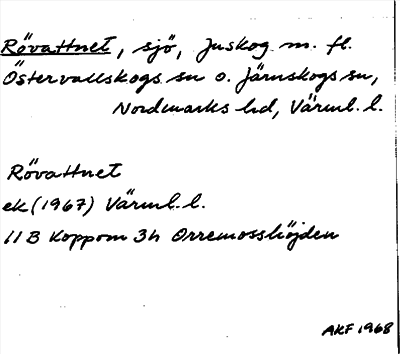 Rövattnet, sjö, Juskog m. fl.
Östervallskogs sn o. Järnskogs sn,
Nordmarks hd, Värml. l.
Rövattnet
ek (1967) Värml. l.
11 B Koppom 3h Orremosshöjden
AKF 1968